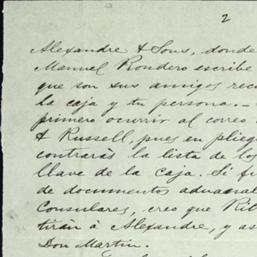 2
Alexandre & Sons, donde
Manuel Rondero escribe
que son sus amigos reco
la caja y tu persona. -
primero ocurrir al correo
& Russell, pues en plieg
contrarás la lista de los
llave de la caja. Si fu
de documentos aduanal
Consulares, creo que Rit
tirán á Alexandre, y as
Don Martin.